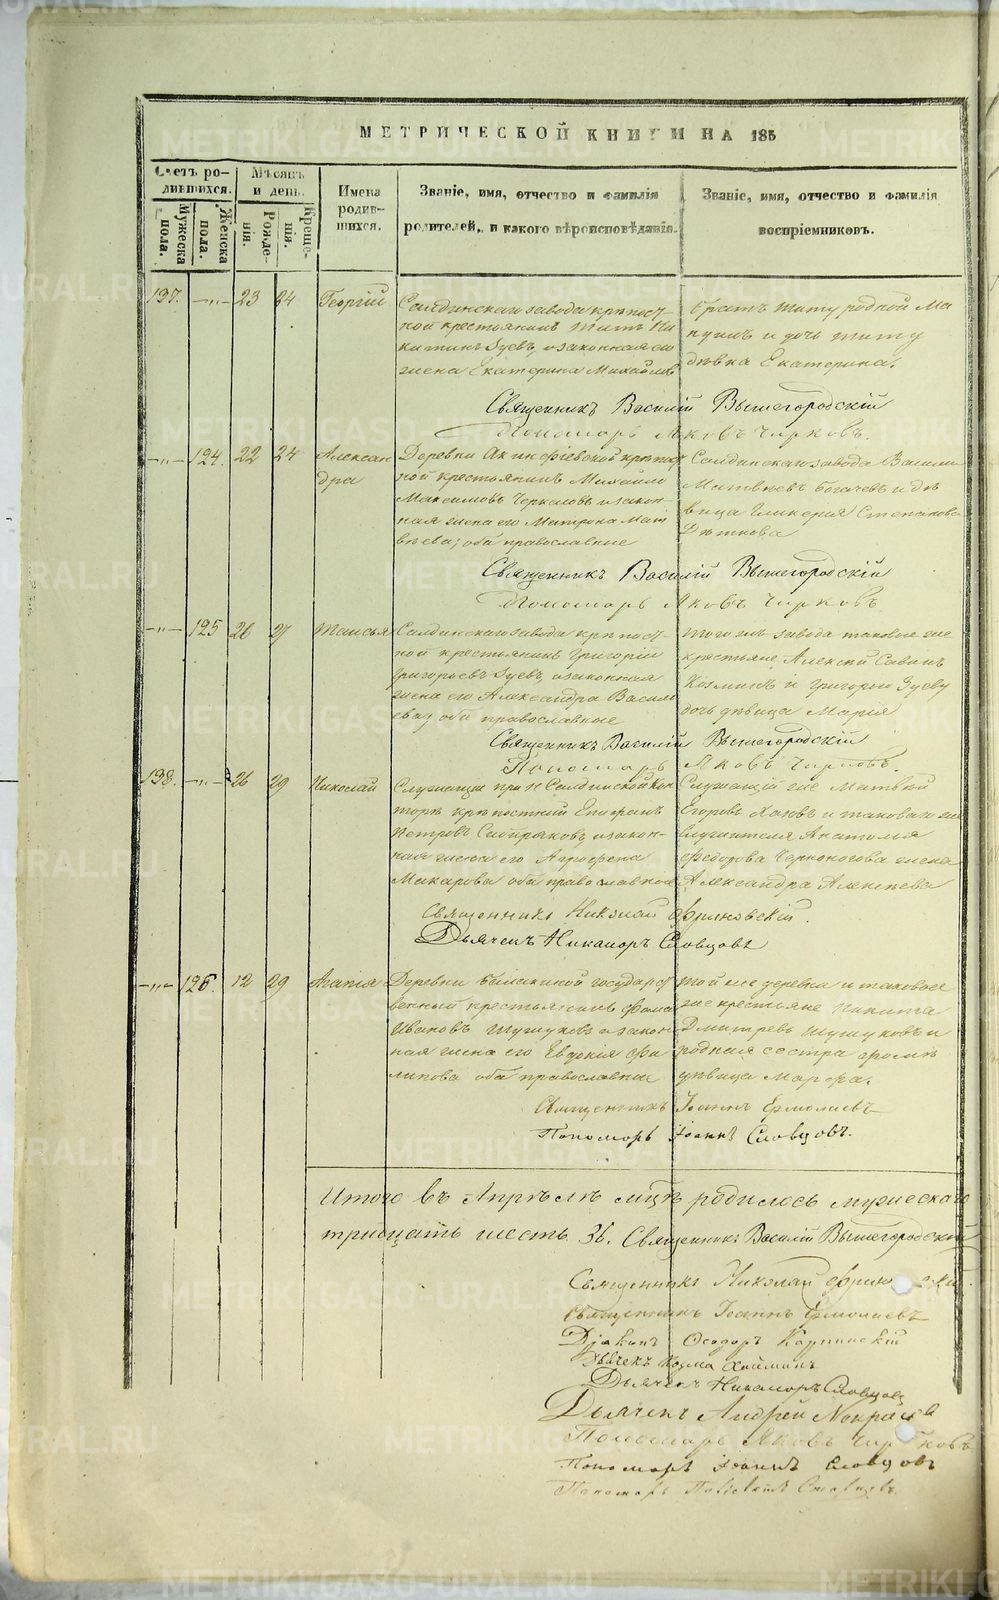 МЕТРИЧЕСКОЙ КНИГИ НА 185
Счетъ ро-
дившихся.
Мужеска
пола.
Женска
пола.
Мѣсяцъ
и день.
Рожде-
нія.
Креще-
нія.
Имена
родив-
шихся.
Званіе, имя, отчество и фамилія
родителей, и какого вѣроисповѣданія.
Званіе, имя, отчество и фамилія
воспріемниковъ.
137. —„— 23 24 Георгій
Салдинскаго завода крѣпост-
ной крестьянинъ Титъ Ни
китинъ Зуевъ, и законная его
жена Екатерина Михайлова
братъ Титу родной Ма
и дочь Титу
дѣвка Екатерина.
Священникъ Василій Вышегородскій
Пономарь Яковъ Чирковъ.
—„— 124. 22 24 Алексан
дра
Деревни Акинфіевской крѣпост
ной крестьянинъ Михайло
Максимовъ Черкасовъ и закон-
ная жена его Матрона Мат
вѣева; оба православные
Салдинскаго завода Василій
Матвѣевъ Богачевъ и дѣ
вица Гликерія Степанова
Священникъ Василій Вышегородскій
Пономарь Яковъ Чирковъ
—„— 125 26 27 Таисья
Салдинскаго завода крѣпост-
ной крестьянинъ Григорій
Григорьевъ Зуевъ, и законная
жена его Александра Василь
ева; оба православные
Того же завода таковые же
крестьяне Алексѣй Савинъ
Козминъ и Григорью Зуеву
дочь дѣвица Марія
Священникъ Василій Вышегородскій
Пономарь Яковъ Чирковъ.
138. —„— 26 29 Николай
Служащій при Н Салдинской Кон
торѣ крѣпостный Епифанъ
Петровъ Сибиряковъ и закон-
ная жена его Агрофена
Макарова оба православные
Служащій же Матвѣй
Егоровъ и таковаго же
служителя Анатолія
Федорова Черноногова жена
Александра Алексѣева
Священникъ Николай Фриновскій.
Дьячекъ Никаноръ Словцовъ
—„— 126. 12 29 Агапія
Деревни Балакиной государст
венный крестьянинъ Фома
Ивановъ Шушуковъ и закон
ная жена его Евдокія Фи
липова оба православные
той же деревни и таковые
же крестьяне Никита
Дмитревъ Шушуковъ и
родная сестра Фомѣ
дѣвица Марфа.
Священникъ Іоаннъ Ермолаевъ
Пономарь Іоаннъ Словцовъ.
Итого въ Апрѣлѣ м҃цѣ родилось мужескаго
тридцать шесть 36. Священникъ Василій Вышегородскій
Священникъ Николай Фрин
Священникъ Іоаннъ Ермолаевъ
Діаконъ Ѳеодоръ Карпинскій
Дьячекъ Козма
Дьячекъ Никаноръ Словцовъ
Дьячекъ Андрей Некрасов
Пономарь Яковъ Чирковъ
Пономарь Іоаннъ Словцовъ
Пономарь
METRIKI.GASO-URAL.RU